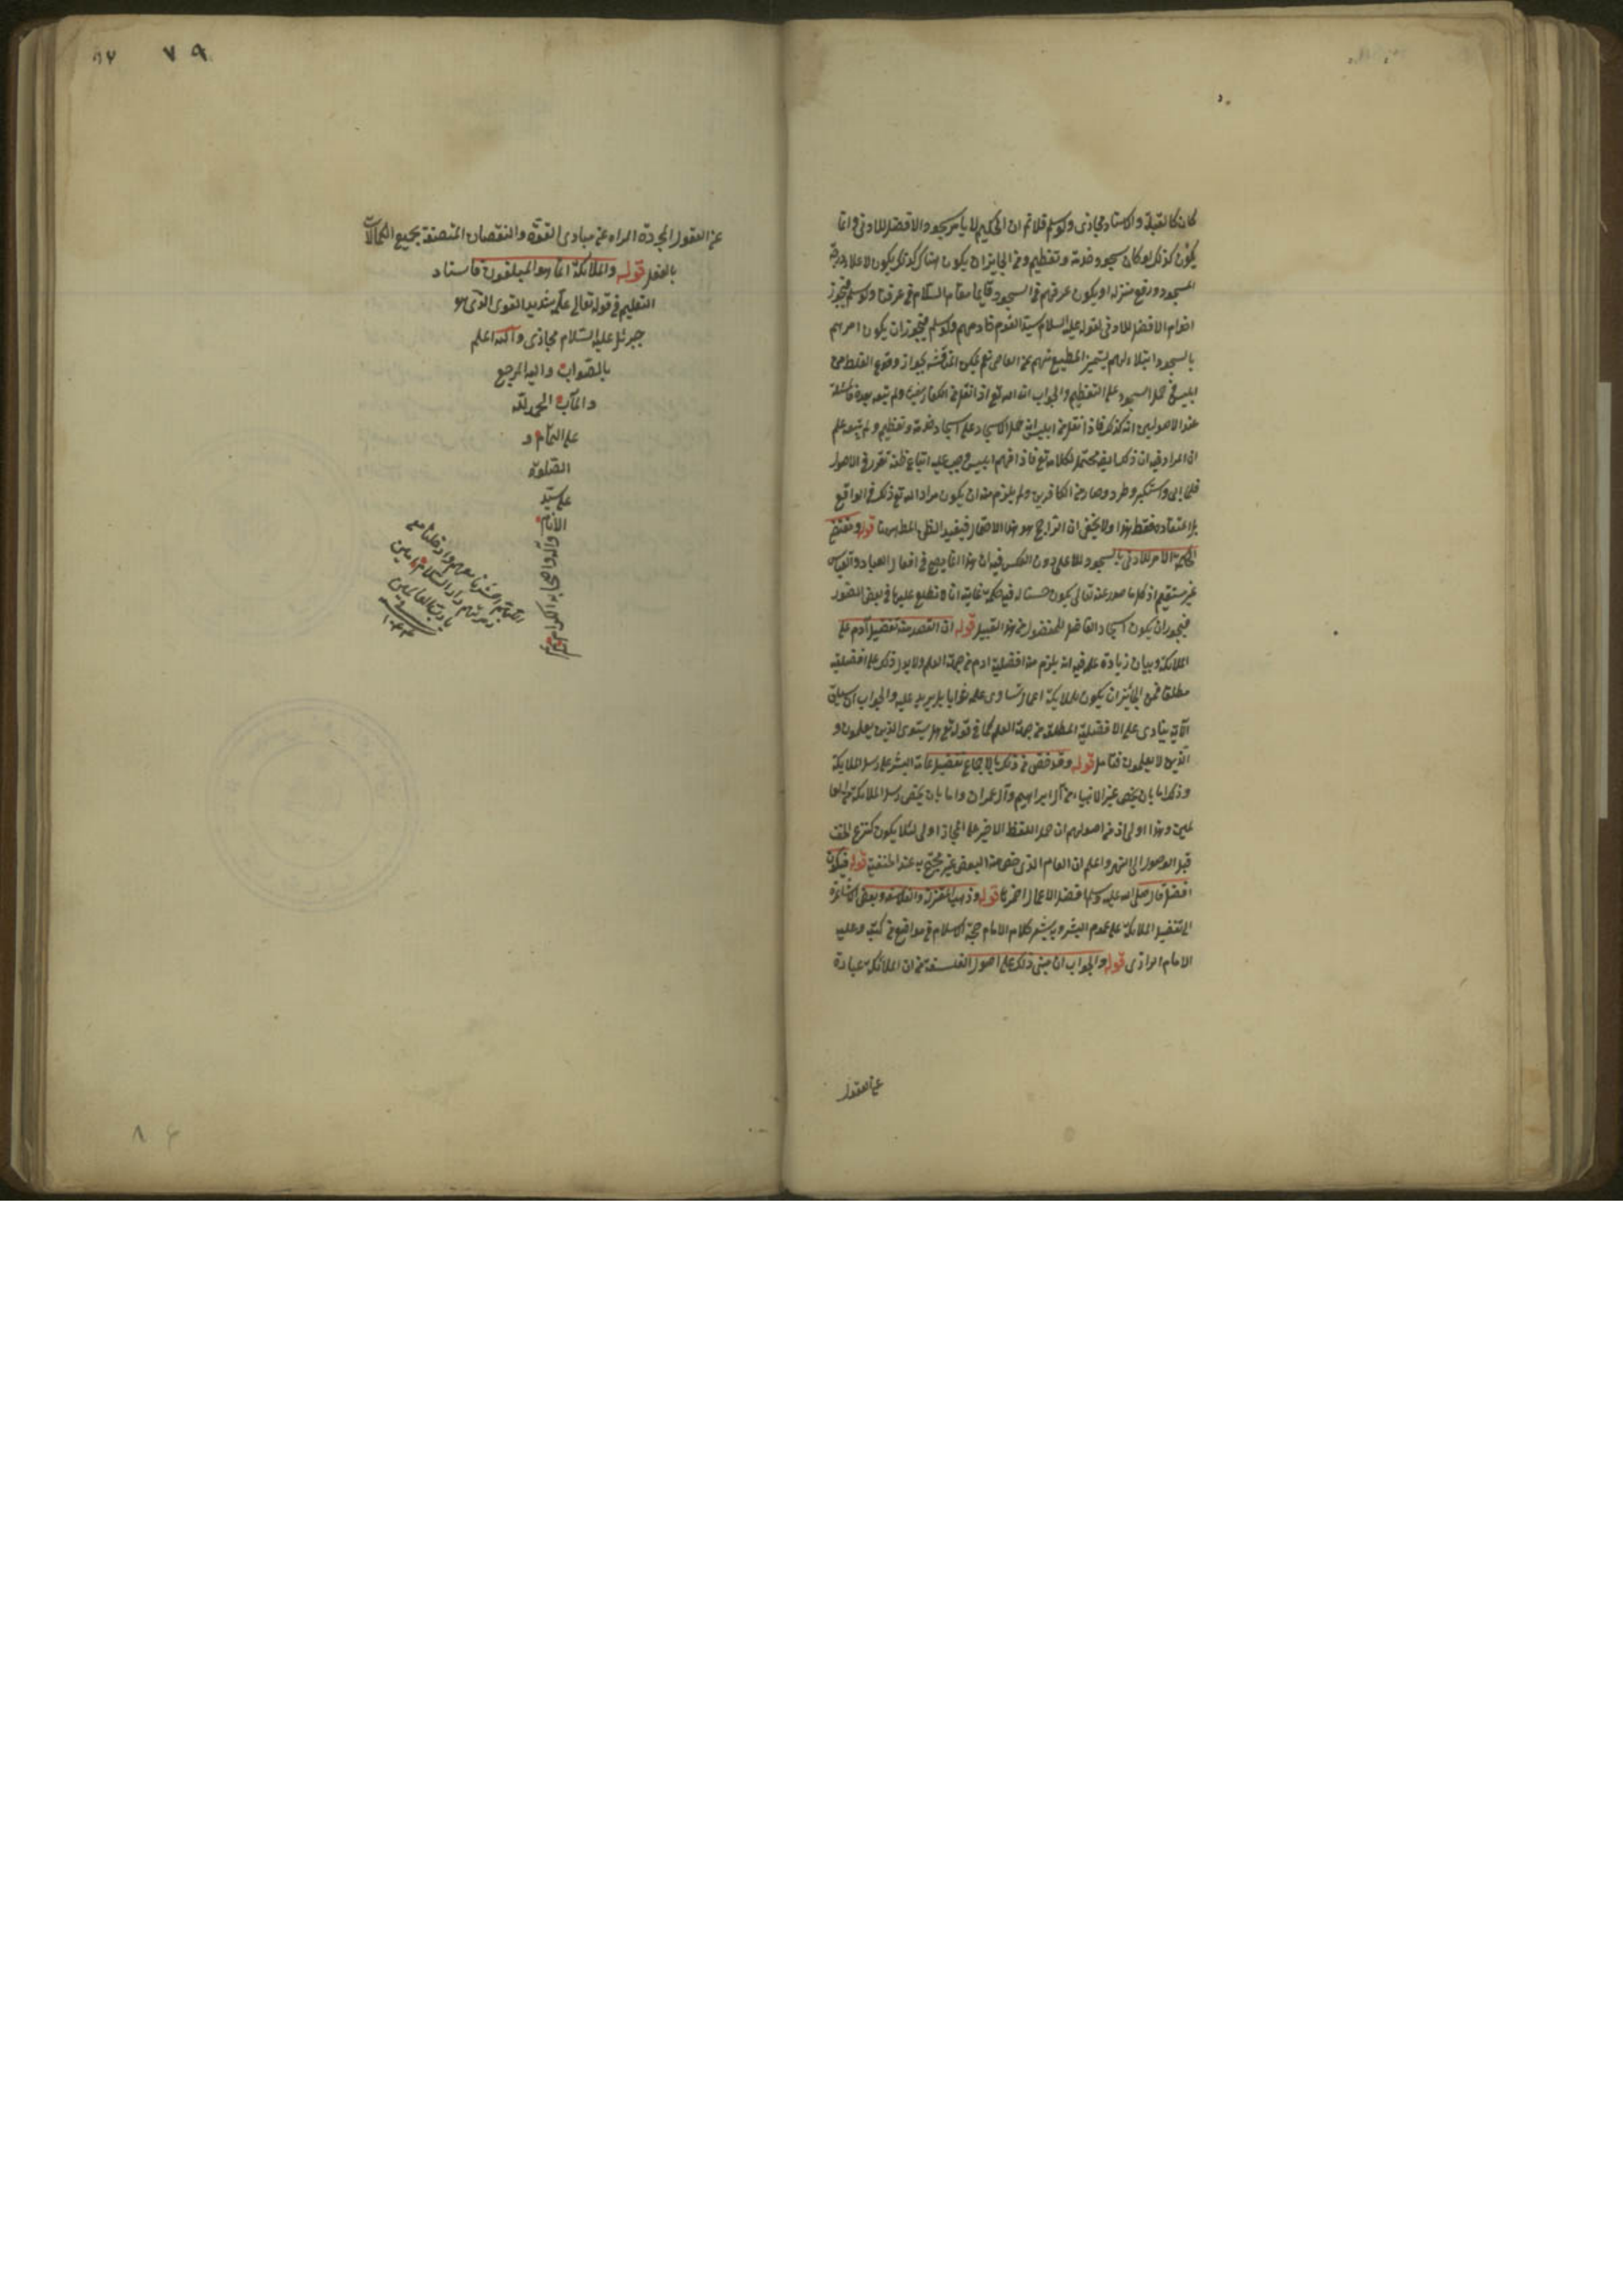 كان كالقبلة والاسناد مجازى ولو سلم فلا نم ان الحكيم لا يأمر بسجود الافضل للادنى وانما
يكون كذلك لو كان سجود خدمة وتعظيم ومن الجايز ان يكون هناك كذلك يكون لاعلاء درجة
المسجود ورفع منزله او يكون عرفهم فى السجود قايما مقام السلام فى عرفنا ولو سلم فيجوز
الافضل للادنى لقوله عليه السلام سيد القوم خادمهم ولو سلم فيجوز ان يكون امرهم
بالسجود ابتلاء لهم ليتميز المطيع منهم عن العاصى نعم يمكن المناقشة بجواز وقوع الغلط من
ابليس فى حمل السجود على التعظيم والجواب انه تع اذا نقل من الكفار شيئا ولم يتبعه
عند الاصوليين انه كذلك فاذا نقل من ابليس انه حمل الاسجاد على اسجاد خدمة وتعظيم ولم يتبعه علم
ان المراد فيه ان ذلك محتمل لكلامه تع فاذا فهم ابليس وجب عليه اتباع ظنه تقرر فى الاصول
فلما ابى واستكبر وطرد وصار من الكافرين ولم يلزم منه ان يكون مراد الله تع ذلك فى الواقع
بل اعتقاده فقط هذا ولا يخفى ان الراجح هو هذا الاحتمال فيفيد الظن المط ههنا قوله ومقتضى
الحكمة الامر للادنى بالسجود للاعلى دون العكس فيه ان هذا انما يصح فى افعال العباد والقياس
غير مستقيم اذ كل ما صدر عنه تعالى يكون حسنا له فيه حكمة غايته انا لا نطلع عليها فى بعض الصور
فيجوز ان يكون اسجاد الفاضل للمفضول من هذا القبيل قوله ان القصد منه تفضيل آدم على
الملائكة وبيان زيادة علمه فيه انه يلزم منه افضلية ادم من جهة العلم ولا يدل ذلك على افضليته
مطلقا فمن الجائز ان يكون للملايكة اعمال تساوى علمه ثوابا بل يزيد عليه والجواب ان سياق
الآية ينادى على الافضلية المطلقة من جهة العلم كما فى قوله تع هل يستوى الذين يعلمون و
الذين لا يعلمون فتامل قوله وقد خص من ذلك بالاجماع تفضيل عامة البشر على رسل الملايكة
وذلك اما بان يخص غير الانبياء من آل ابراهيم وآل عمران واما بان يخص رسل الملائكة من العا
لمين وهذا اولى اذ من اصولهم ان حمل اللفظ الاخير على المجاز اولى لئلا يكون كنزع الخف
قبل الوصول الى النهر واعلم ان العام الذى خص منه البعض غير محتج به عند الحنفية قوله فيكون
افضل قال صلى الله عليه وسلم افضل الاعمال احمزها قوله وذهب المعتزلة والفلاسفة وبعض الاشاعرة
الى تفضيل الملائكة على عموم البشر ويشعر كلام الامام حجة الاسلام فى مواقع من كتبه وعليه
الامام الرازى قوله والجواب ان مبنى ذلك على اصول الفلسفة من ان الملائكة عبارة
عن العقول
عن العقول المجردة المبراة عن مبادى القوة والنقصان المتصفة بجميع الكمالات
بالفعل قوله والملائكة انما هو المبلغون فاسناد
التعليم فى قوله تعالى علمه شديد القوى الذى هو
جبرئل عليه السلام مجازى والله اعلم
بالصواب واليه المرجع
والمآب الحمد لله
على التمام و
الصلوة
على سيد
الانام
وآله واصحابه الكرام
اللهم احشرنا معهم وادخلنا مع
زمرتهم دار السلام امين
يا رب العالمين
٧٩